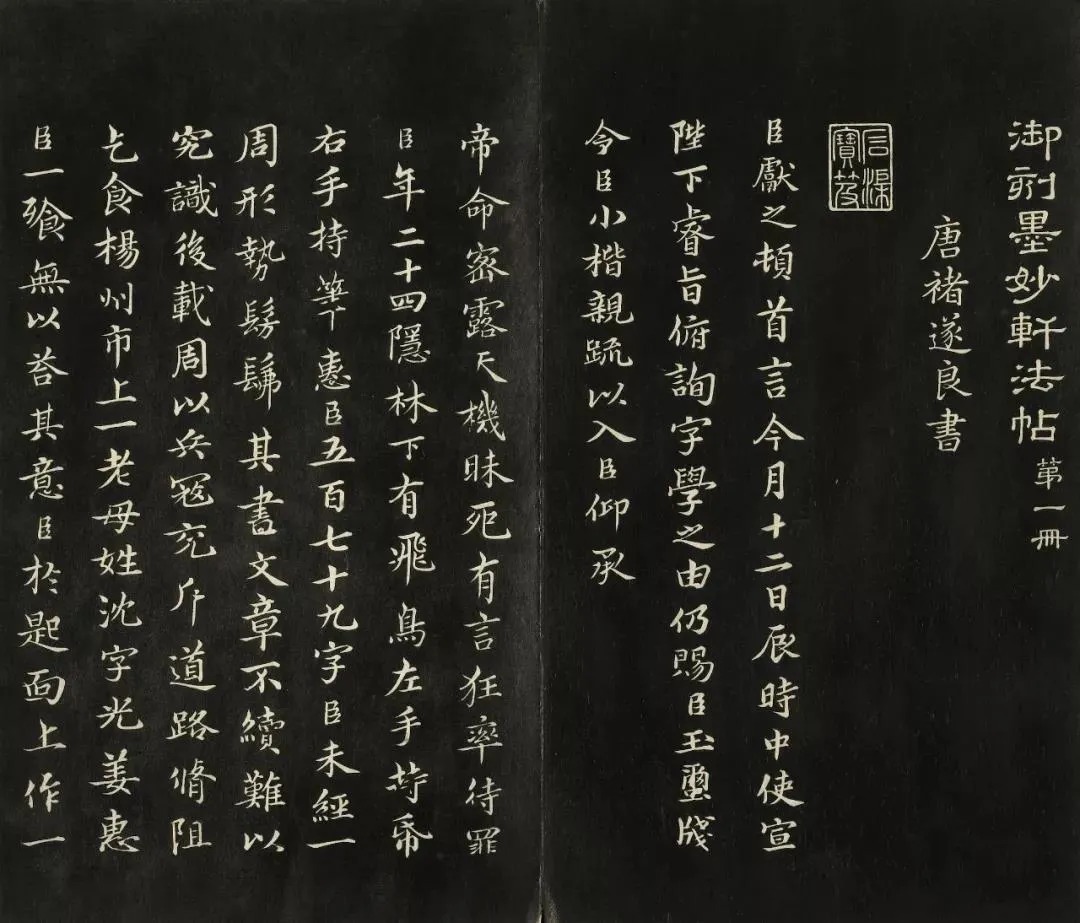 御刻墨妙軒法帖 第一冊
唐褚遂良書
石渠寶笈
臣獻之頓首言今月十二日辰時中使宣
陛下睿旨俯詢字學之由仍賜臣玉璽牋
令臣小楷親疏以入臣仰承
帝命密露天機昧死有言狂率待罪
臣年二十四隱林下有飛鳥左手持帋
右手持筆惠臣五百七十九字臣未經一
周形勢髣髴其書文章不續難以
究識後載周以兵寇充斥道路脩阻
乞食楊州市上一老母姓沈字光姜惠
臣一飡無以荅其意臣於是面上作一